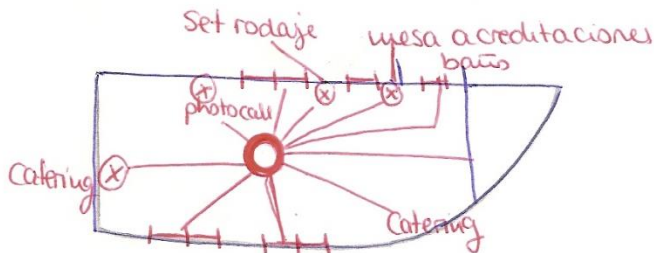 set rodaje
mesa acreditaciones
baños
photocall
Catering
Catering